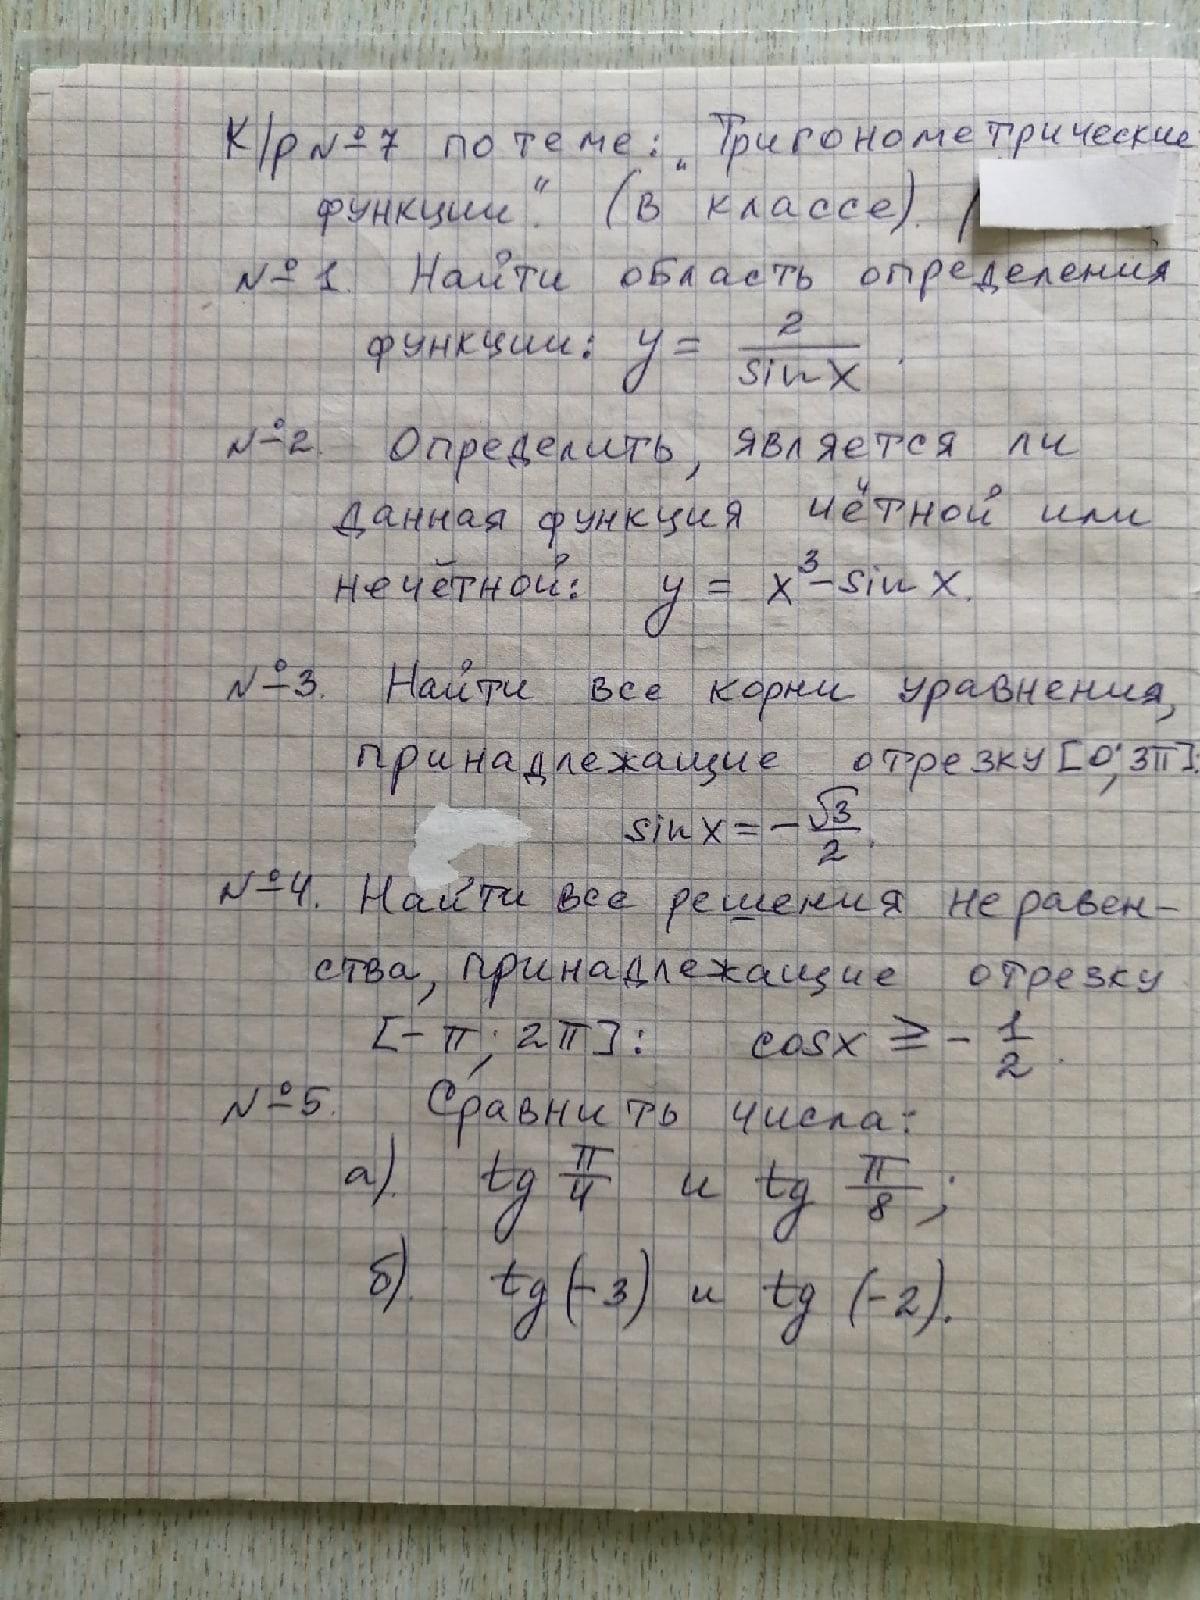 К/р №7 по теме: „Тригонометрические
функции“. (в классе).
№1. Найти область определения
функции: y = 2/sin x.
№2. Определить, является ли
данная функция чётной или
нечётной: y = x³ - sin x.
№3. Найти все корни уравнения,
принадлежащие отрезку [0; 3π]:
sin x = - √3/2.
№4. Найти все решения неравен-
ства, принадлежащие отрезку
[- π; 2π]: cos x ≥ - 1/2.
№5. Сравнить числа:
а). tg π/4 и tg π/8;
б). tg (-3) и tg (-2).